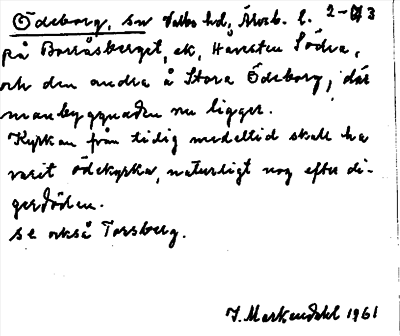 Ödeborg, sn Valbo hd, Älvsb. l. 2-3
på Borråsberget, ek, Håvesten Södra,
och den andra å Stora Ödeborg, där
manbyggnaden nu ligger.
Kyrkan från tidig medeltid skall ha
varit ödekyrka, naturligt nog efter di-
gerdöden.
se också Torsberg.
J. Markendahl 1961